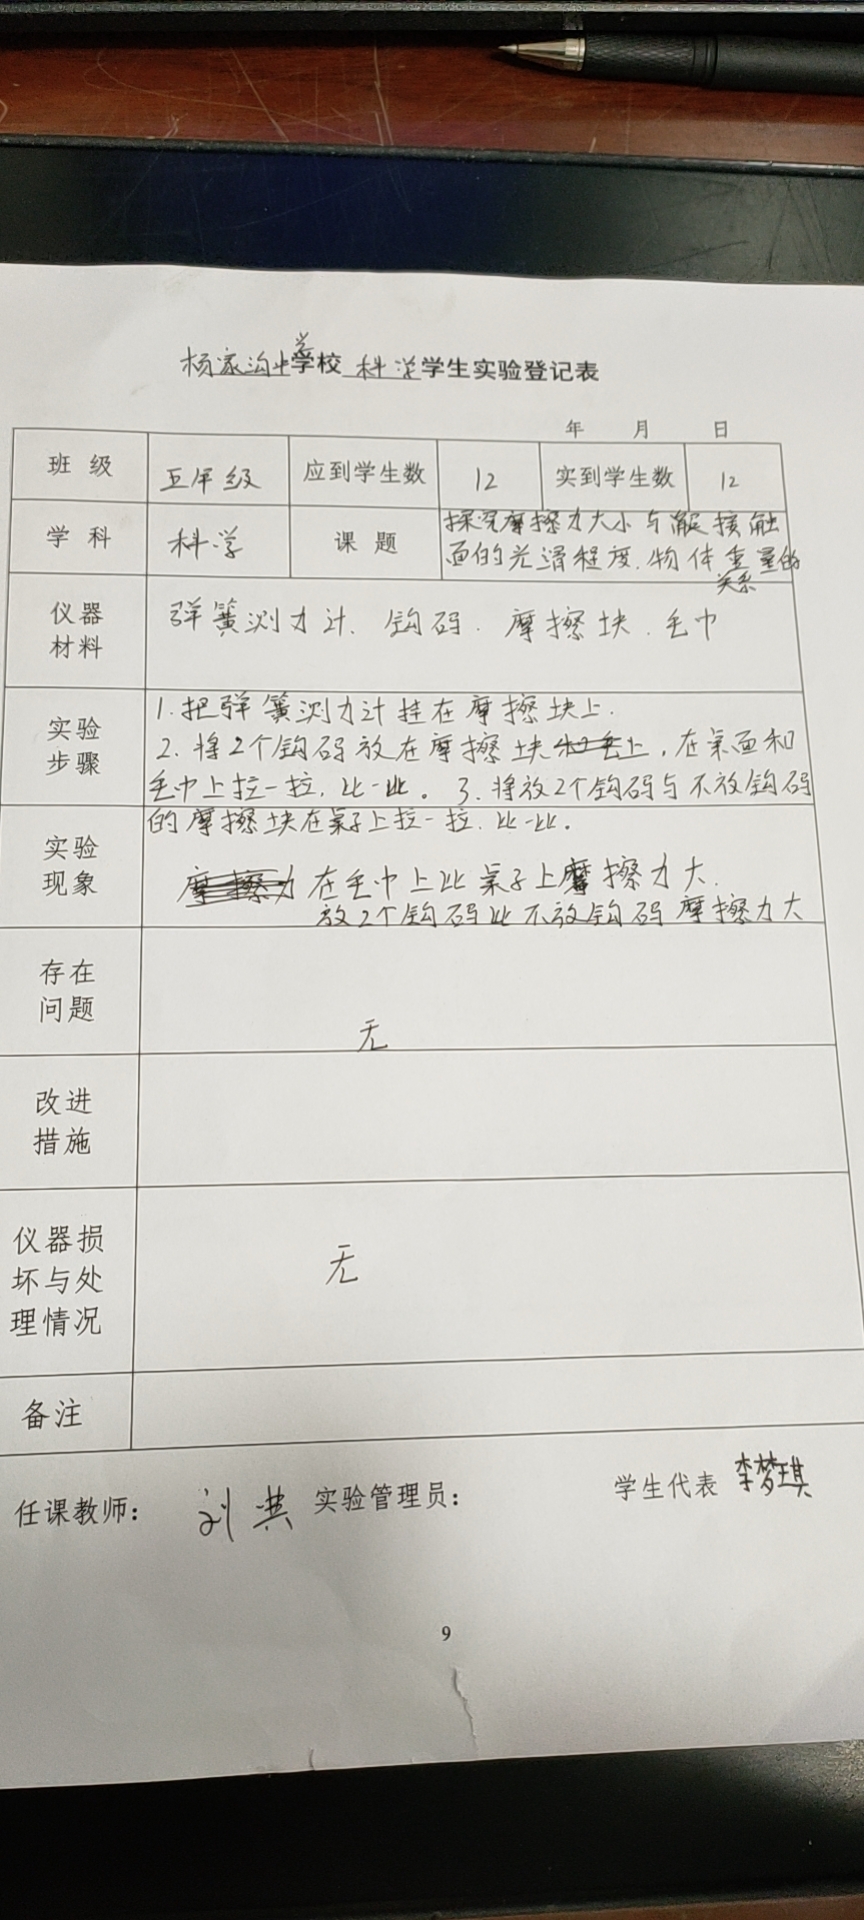 杨家沟中学校 科学学生实验登记表
年 月 日
班级 五年级 应到学生数 12 实到学生数 12
学科 科学 课题 探究摩擦力大小与接触
面的光滑程度、物体重量的
关系
仪器
材料
弹簧测力计、钩码、摩擦块、毛巾
实验
步骤
1.把弹簧测力计挂在摩擦块上.
2.将2个钩码放在摩擦块上,在桌面和
毛巾上拉一拉,比一比。3.将放2个钩码与不放钩码
的摩擦块在桌子上拉一拉,比一比。
实验
现象
摩擦力在毛巾上比桌子上摩擦力大.
放2个钩码比不放钩码摩擦力大
存在
问题
无
改进
措施
仪器损
坏与处
理情况
无
备注
任课教师: 刘英 实验管理员: 学生代表 李梦琪
9